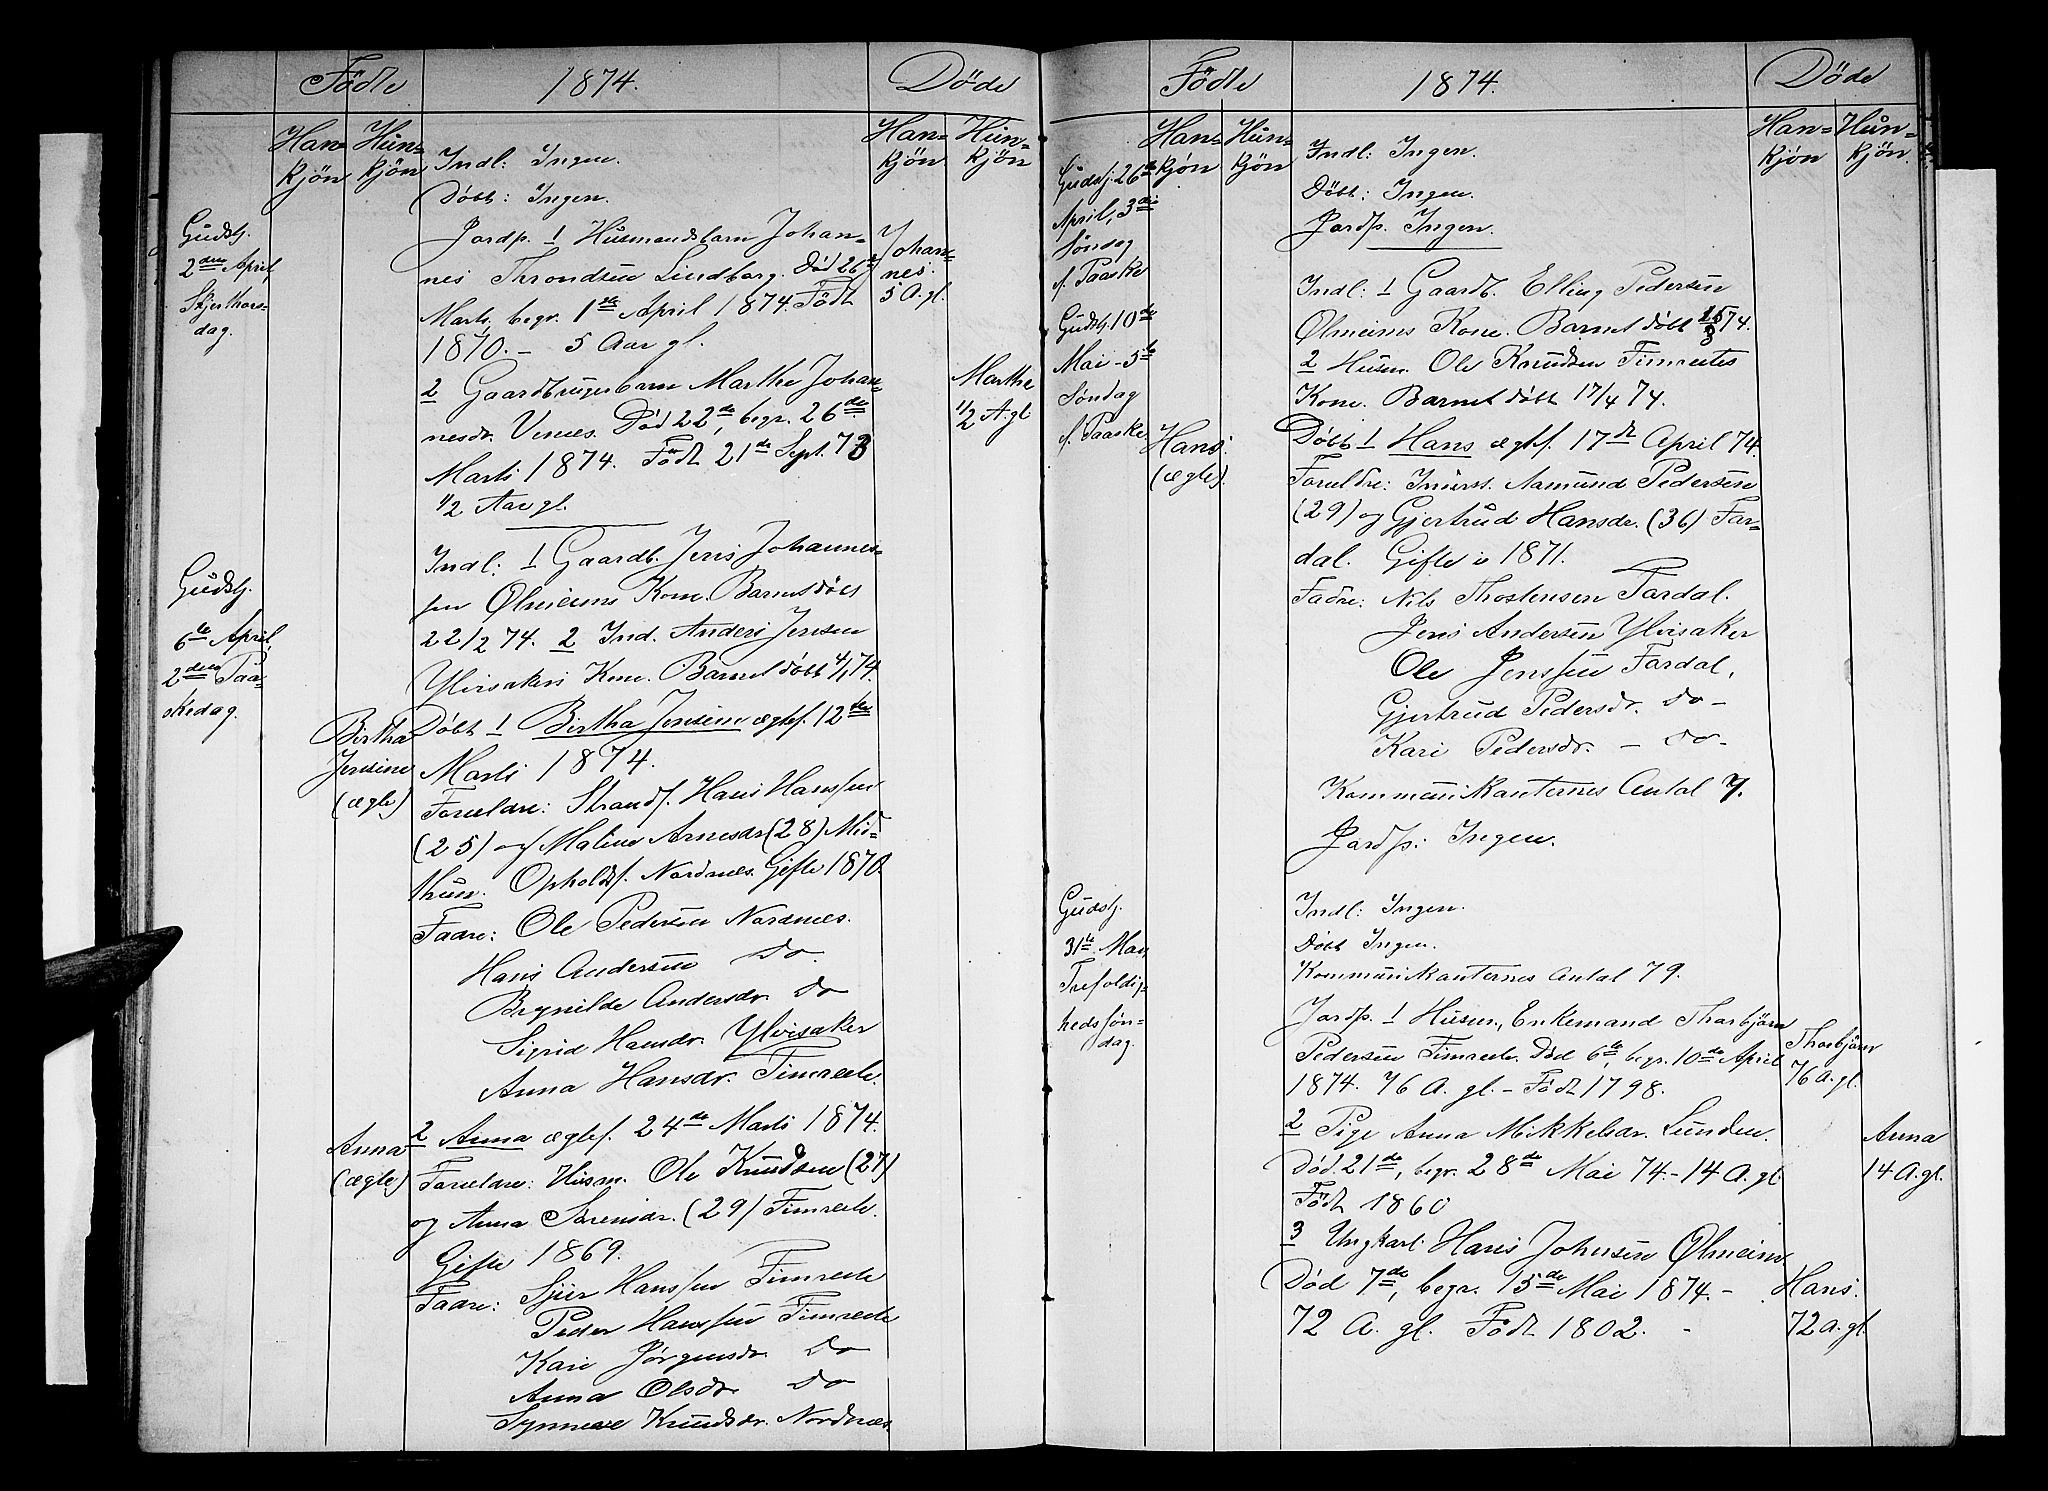 Födte 1874. Döde
Han= Hün= Han= Hün=
kjön kjön kjön kjön
Gudstj.
2den April,
Skjerthors=
dag.
Indl: Ingen.
Döbt: Ingen.
Jordp. 1 Husmandsbarn Johan=
nes Throndsen Lindborg. Död 26de
Marts, begr. 1ste April 1874. Födt
1870. – 5 Aar gl.
Johan=
nes.
5 A. gl.
2 Gaardbrugerbarn Marthe Johan=
nesdr. Venæs. Död 22de, begr. 26de
Marts 1874. Födt 21de Sept. 73
1/2 Aar gl.
Marthe
1/2 A. gl
Gudstj.
6te April,
2den Paa=
skedag.
Indl: 1 Gaardb. Jens Johannes=
sen Ølmeims Kone. Barnet döbt
22/2 74. 2 Ind. Anders Jensen
Ylvisakers Kone. Barnet döbt 4/1 74.
Birtha
Jensine
(ægte)
Döbt 1 Birtha Jensine ægtef. 12te
Marts 1874.
Forældre: Strands. Hans Hanssen
(25) og Maline Arnesdr. (28) Mid=
thun. Opholds. Nordnæs. Gifte 1870.
Fadre: Ole Pedersen Nordnæs.
Hans Andersen Do.
Brynilde Andersdr. Do
Sigrid Hansdr. Ylvisaker
Anna Hansdr. Fimreite.
Anna
(ægte)
2 Anna ægtef. 24de Marts 1874.
Forældre: Husm. Ole Knudsen (27)
og Anna Sörensdr. (29) Fimreite.
Gifte 1869.
Fadre: Sjur Hanssen Fimreite
Peder Hanssen Fimreite
Kari Jörgensdr. Do
Anna Olsdr. Do
Synneve Knudsdr. Nordnæs.
Födte 1874. Döde
Han= Hün= Han= Hün=
kjön kjön kjön kjön.
Gudstj. 26de
April, 3die
Söndag
f. Paaske
Indl: Ingen.
Döbt: Ingen.
Jordp. Ingen.
Gudstj. 10de
Mai – 5te
Söndag
f. Paaske.
Indl: 1 Gaardb. Elling Pedersen
Ølmeims Kone. Barnet döbt 15/3 74.
2 Husm. Ole Knudsen Fimreites
Kone. Barnet döbt 17/4 74.
Hans.
(ægte).
Döbt 1 Hans ægtef. 17de April 74.
Forældre: Inderst. Aamund Pedersen
(29) og Gjertrud Hansdr. (36) Far=
dal. Gifte i 1871.
Fadre: Nils Thostensen Fardal.
Jens Andersen Ylvisaker
Ole Jenssen Fardal,
Gjertrud Pedersdr. Do –
Kari Pedersdr. – Do –
Kommunikanternes Antal 7.
Jordp: Ingen.
Gudstj.
31te Mai,
Trefoldig=
hedssön=
dag.
Indl: Ingen.
Döbt Ingen.
Kommunikanternes Antal 79.
Jordp. 1 Husm., Enkemand Thorbjörn
Pedersen Fimreite. Död 6te, begr. 10de April
1874. 76 A. gl. – Födt 1798.
Thorbjörn
76 A. gl.
2 Pige Anna Mikkelsdr. Lunden.
Död 21de, begr. 28de Mai 74. – 14 A. gl.
Födt 1860
Anna
14 A. gl.
3 Ungkarl Hans Johnsen Ølmeim.
Död 7de, begr. 15de Mai 1874. –
72 A. gl. Födt 1802. –
Hans.
72 A. gl.